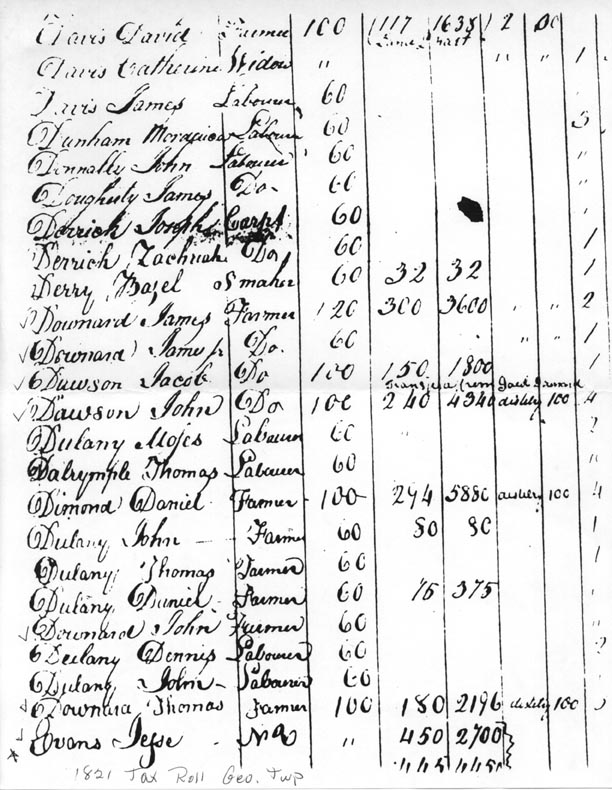 Davis David Farmer 100 1117 1638 2 00
Davis Catherine Widow " " " 1
Davis James Labourer 60
Dunham Labourer 60 3
Donnally John Labourer 60 "
Dougherty James Do. 60 "
Derrick Joseph Carpt 60
Derrick Zachriah Do 60 1
Derry Bazel Smaker 60 32 32 1
Downard James Farmer 120 300 3600 " " 2
Downard James jr Do. 60 " " 1
Dawson Jacob Do 100 150 1800 1
Transfer from
Dawson John Do 100 240 4340 distilry 100 4
Dulany Moses Labourer 60 " 2
Dalrymple Thomas Labourer 60 "
Dimond Daniel Farmer 100 294 5880 distilry 100 4
Dulany John Farmer 60 80 80 1
Dulany Thomas Farmer 60 1
Dulany Daniel Farmer 60 15 375
Downard John Farmer 60 "
Deulany Dennis Labourer 60 2
Dulany John Labourer 60
Downard Thomas Farmer 100 180 2196 distilry 100
Evans Jesse " 450 2700
445 445
1821 Tax Roll Geo. Twp